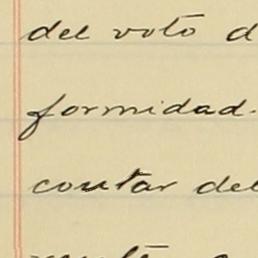 del voto d
formidad.
contar del